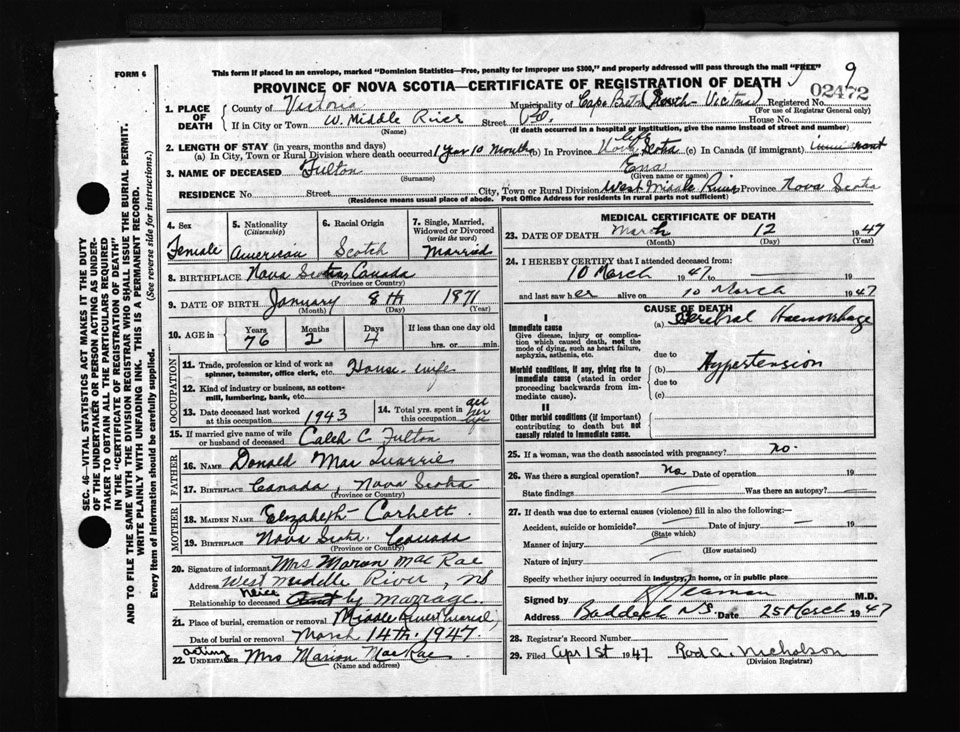 FORM 6
This form if placed in an envelope, marked "Dominion Statistics—Free, penalty for improper use $300," and properly addressed will pass through the mail "FREE"
9
PROVINCE OF NOVA SCOTIA—CERTIFICATE OF REGISTRATION OF DEATH
02472
1. PLACE OF DEATH
County of Victoria Municipality of Cape Breton Registered No.
(For use of Registrar General only)
If in City or Town W. Middle River Street House No.
(Name) (If death occurred in a hospital or institution, give the name instead of street and number)
2. LENGTH OF STAY (in years, months and days)
(a) In City, Town or Rural Division where death occurred 1 year 10 months (b) In Province life Nova Scotia (c) In Canada (if immigrant) immigrant
3. NAME OF DECEASED Fulton Ena
(Surname) (Given name or names)
RESIDENCE No. Street City, Town or Rural Division West Middle River Province Nova Scotia
(Residence means usual place of abode. Post Office Address for residents in rural parts not sufficient)
SEC. 46—VITAL STATISTICS ACT MAKES IT THE DUTY
OF THE UNDERTAKER OR PERSON ACTING AS UNDER-
TAKER TO OBTAIN ALL THE PARTICULARS REQUIRED
IN THE "CERTIFICATE OF REGISTRATION OF DEATH"
AND TO FILE THE SAME WITH THE DIVISION REGISTRAR WHO SHALL ISSUE THE BURIAL PERMIT.
WRITE PLAINLY WITH UNFADING INK. THIS IS A PERMANENT RECORD.
Every item of information should be carefully supplied. (See reverse side for instructions.)
4. Sex Female
5. Nationality (Citizenship) American
6. Racial Origin Scotch
7. Single, Married, Widowed or Divorced (write the word) Married
8. BIRTHPLACE Nova Scotia Canada
(Province or Country)
9. DATE OF BIRTH January 8th 1871
(Month) (Day) (Year)
10. AGE in Years 76 Months 2 Days 4 If less than one day old hrs. or min.
OCCUPATION
11. Trade, profession or kind of work as spinner, teamster, office clerk, etc. House-wife
12. Kind of industry or business, as cotton-mill, lumbering, bank, etc.
13. Date deceased last worked at this occupation 1943
14. Total yrs. spent in this occupation all her life
15. If married give name of wife or husband of deceased Caleb C. Fulton
FATHER
16. NAME Donald Mac Quarrie
17. BIRTHPLACE Canada, Nova Scotia
(Province or Country)
MOTHER
18. MAIDEN NAME Elizabeth Corbett
19. BIRTHPLACE Nova Scotia, Canada
(Province or Country)
20. Signature of informant Mrs Marion Mac Rae
Address West Middle River, NS
Relationship to deceased Neice Aunt by Marrage.
21. Place of burial, cremation or removal Middle River
Date of burial or removal March 14th. 1947.
22. acting UNDERTAKER Mrs Marion MacRae
(Name and address)
MEDICAL CERTIFICATE OF DEATH
23. DATE OF DEATH March 12 1947
(Month) (Day) (Year)
24. I HEREBY CERTIFY that I attended deceased from:
10 March 1947 to 19
and last saw her alive on 10 March 1947
CAUSE OF DEATH
I
Immediate cause
Give disease, injury or complication which caused death, not the mode of dying, such as heart failure, asphyxia, asthenia, etc.
(a) Cerebral Haemorrhage
due to
Morbid conditions, if any, giving rise to immediate cause (stated in order of proceeding backwards from immediate cause).
(b) Hypertension
due to
(c)
II
Other morbid conditions (if important) contributing to death but not causally related to immediate cause.
25. If a woman, was the death associated with pregnancy? no.
26. Was there a surgical operation? no Date of operation 19
State findings Was there an autopsy?
27. If death was due to external causes (violence) fill in also the following:—
Accident, suicide or homicide? Date of injury 19
(State which)
Manner of injury
(How sustained)
Nature of injury
Specify whether injury occurred in industry, in home, or in public place
Signed by M.D.
Address Baddeck N.S. Date 25 March 1947
28. Registrar's Record Number
29. Filed Apr 1st 1947 Rod A. Nicholson
(Division Registrar)